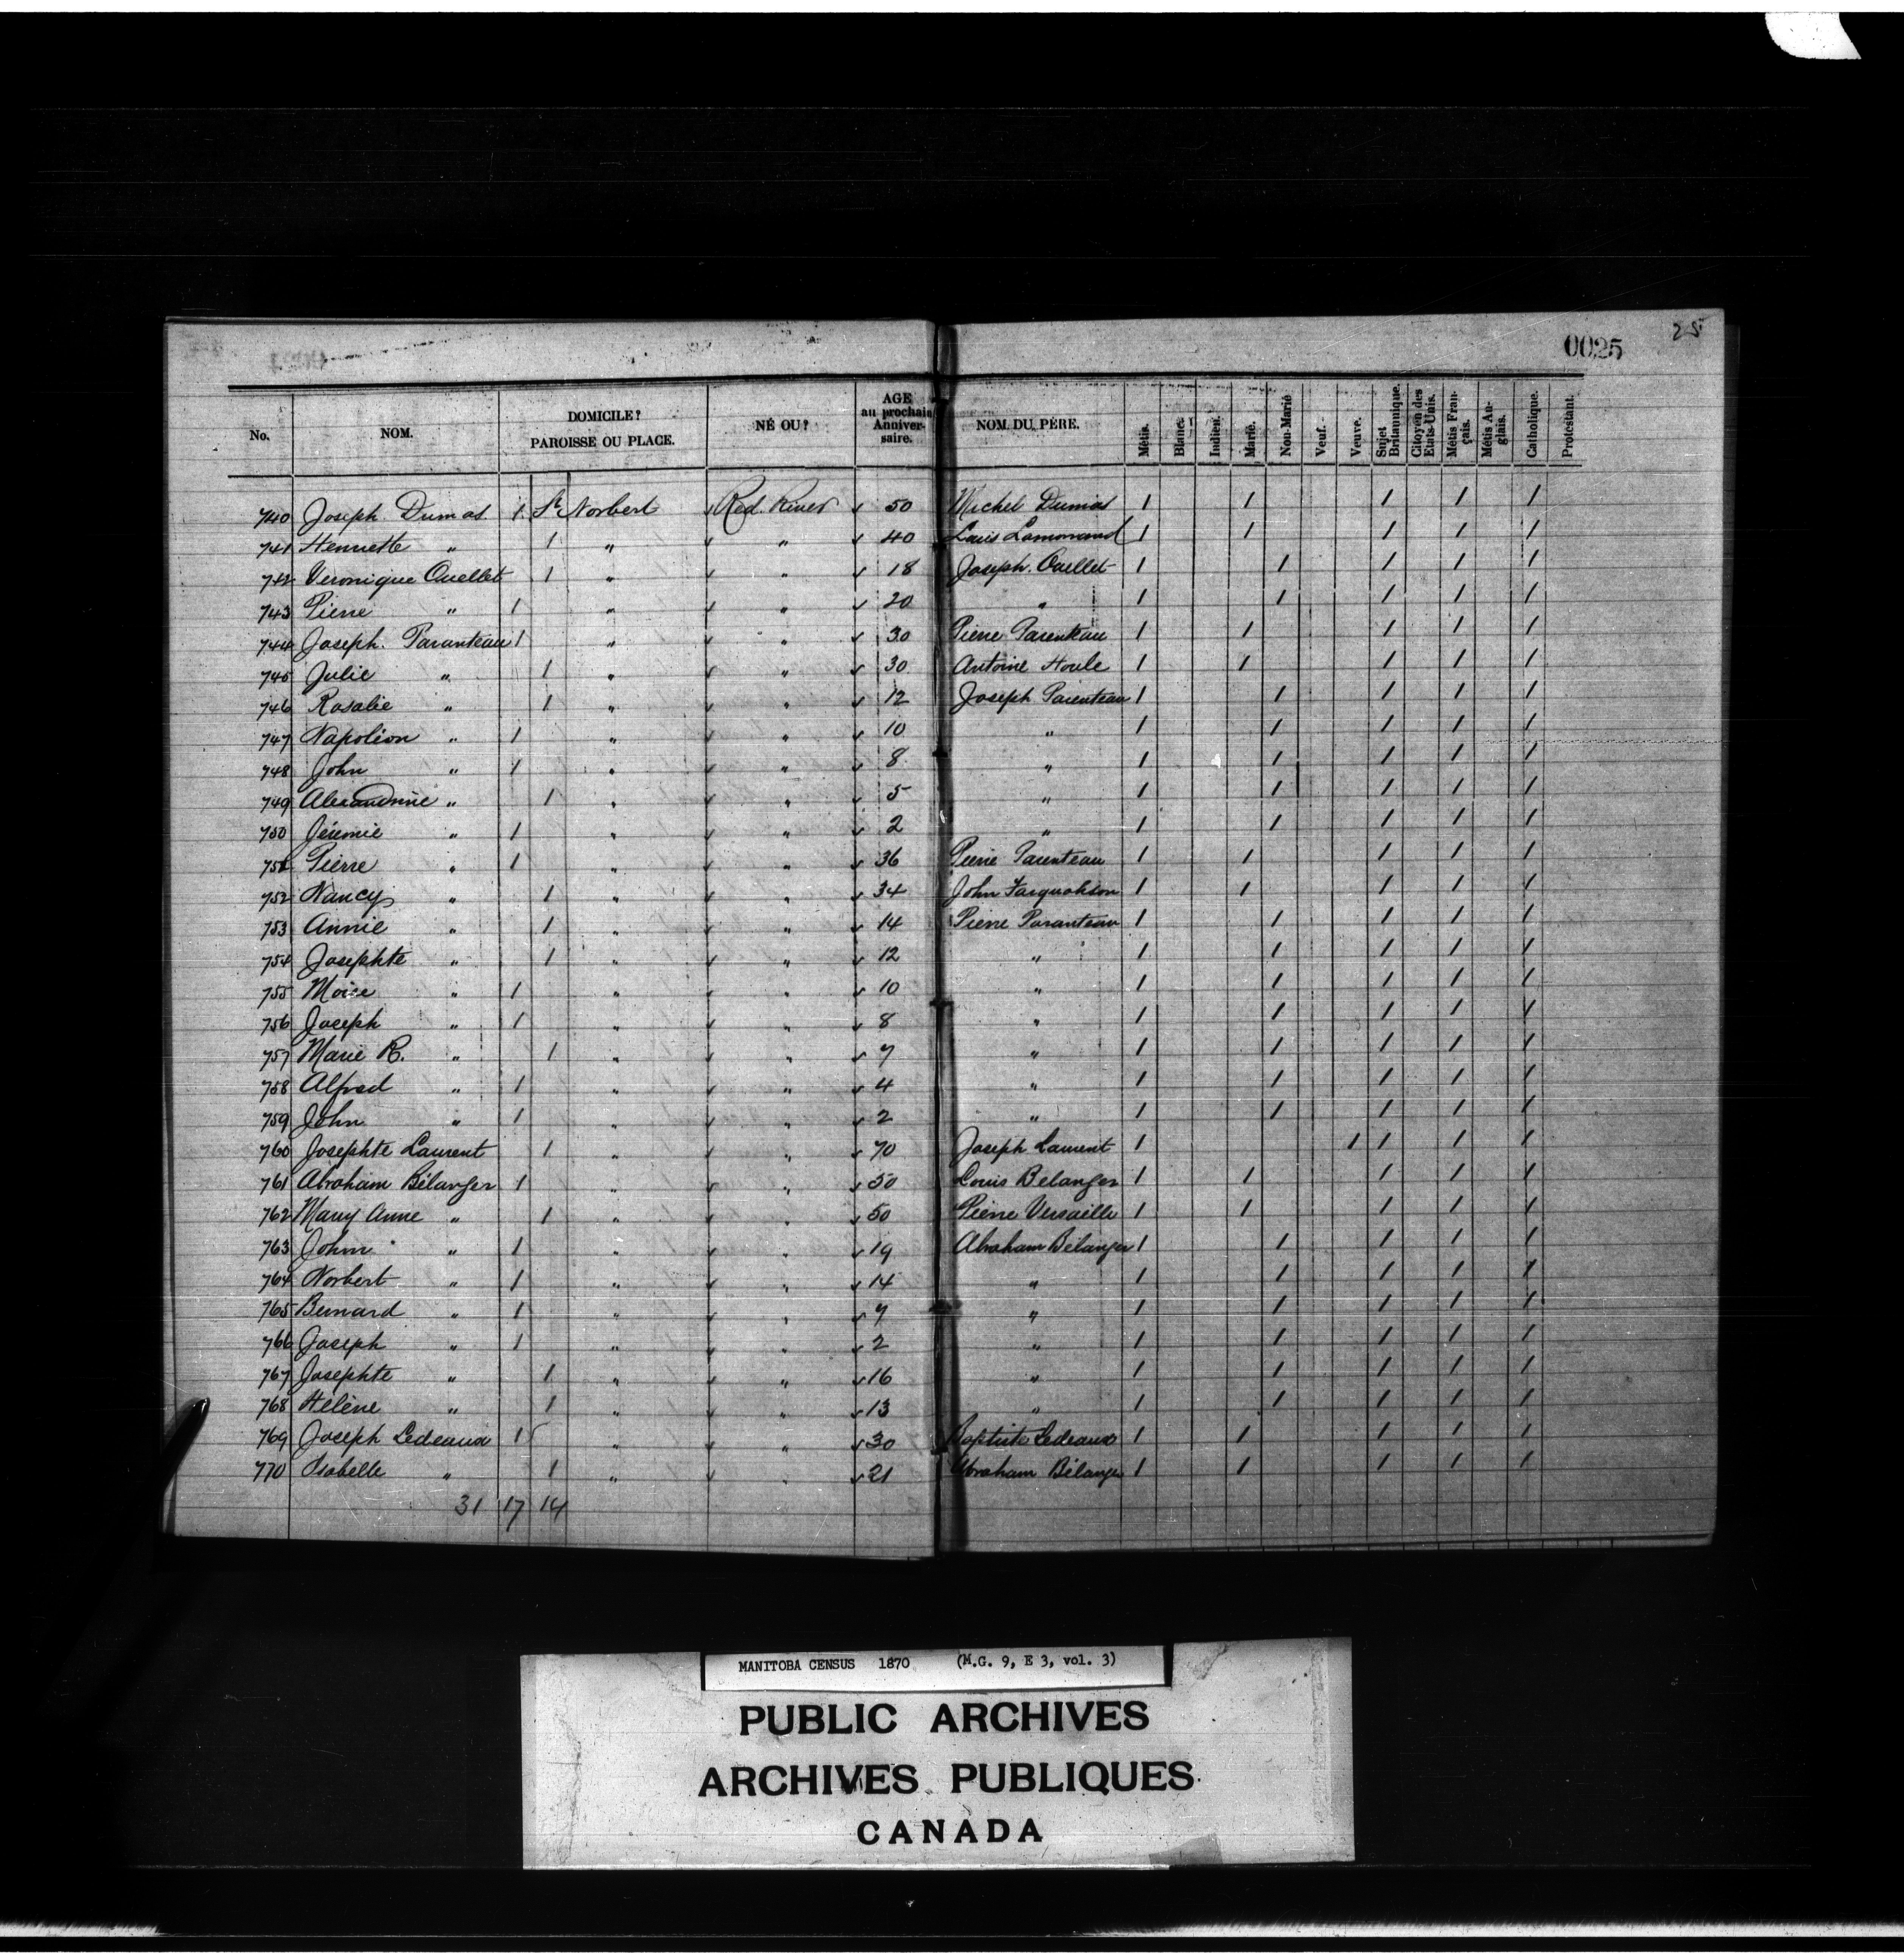 25
0025
No. NOM. DOMICILE? PAROISSE OU PLACE. NÉ OU? AGE au prochain Anniversaire. NOM DU PÈRE. Métis. Blanc. Indien. Marié. Non-Marié Veuf. Veuve. Sujet Britannique. Citoyen des Etats-Unis. Métis Français. Métis Anglais. Catholique. Protestant.
740 Joseph Dumas 1 St Norbert Red River 50 Michel Dumas 1 1 1 1 1
741 Henriette " 1 " " 40 Louis 1 1 1 1 1
742 Veronique Ouellet 1 " " 18 Joseph Ouellet 1 1 1 1 1
743 Pierre " 1 " " 20 " 1 1 1 1 1
744 Joseph Paranteau 1 " " 30 Pierre Parenteau 1 1 1 1 1
745 Julie " 1 " " 30 Antoine Houle 1 1 1 1 1
746 Rosalie " 1 " " 12 Joseph Parenteau 1 1 1 1 1
747 Napoléon " 1 " " 10 " 1 1 1 1 1
748 John " 1 " " 8 " 1 1 1 1 1
749 Alexandrine " 1 " " 5 " 1 1 1 1 1
750 Jéremie " 1 " " 2 " 1 1 1 1 1
751 Pierre " 1 " " 36 Pierre Parenteau 1 1 1 1 1
752 Nancy " 1 " " 34 John Farquahson 1 1 1 1 1
753 Annie " 1 " " 14 Pierre Paranteau 1 1 1 1 1
754 Josephte " 1 " " 12 " 1 1 1 1 1
755 Moise " 1 " " 10 " 1 1 1 1 1
756 Joseph " 1 " " 8 " 1 1 1 1 1
757 Marie R. " 1 " " 7 " 1 1 1 1 1
758 Alfred " 1 " " 4 " 1 1 1 1 1
759 John " 1 " " 2 " 1 1 1 1 1
760 Josephte Laurent 1 " " 70 Joseph Laurent 1 1 1 1 1
761 Abraham Bélanger 1 " " 50 Louis Belanger 1 1 1 1 1
762 Mary Anne " 1 " " 50 Pierre Versaille 1 1 1 1 1
763 John " 1 " " 19 Abraham Bélanger 1 1 1 1 1
764 Norbert " 1 " " 14 " 1 1 1 1 1
765 Bernard " 1 " " 7 " 1 1 1 1 1
766 Joseph " 1 " " 2 " 1 1 1 1 1
767 Josephte " 1 " " 16 " 1 1 1 1 1
768 Hélène " 1 " " 13 " 1 1 1 1 1
769 Joseph Ledeaux 1 " " 30 Baptiste Ledeaux 1 1 1 1 1
770 Isabelle " 1 " " 21 Abraham Bélanger 1 1 1 1 1
31 17 14
MANITOBA CENSUS 1870 (M.G. 9, E 3, vol. 3)
PUBLIC ARCHIVES
ARCHIVES PUBLIQUES
CANADA